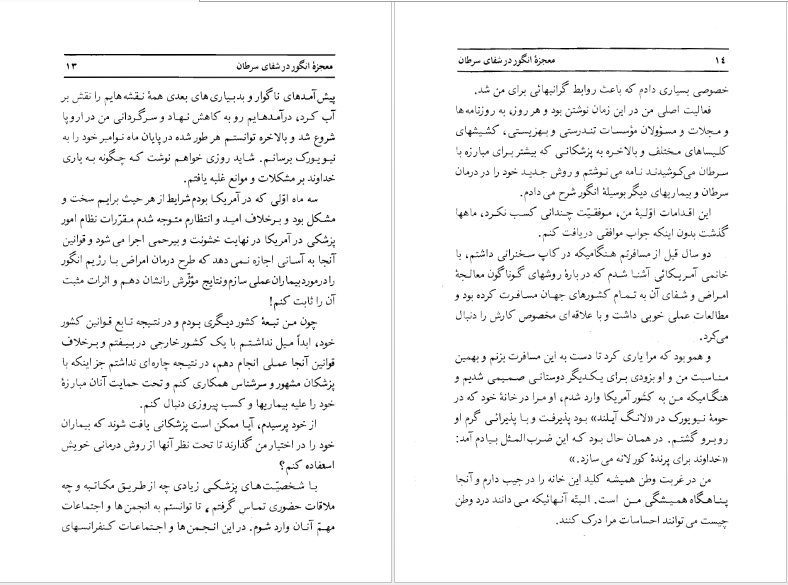 معجزهٔ انگور در شفای سرطان ۱۳
پیش‌آمدهای ناگوار و بدبیاری‌های بعدی همهٔ نقشه‌هایم را نقش بر
آب کرد، درآمدهایم رو به کاهش نهاد و سرگردانی من در اروپا
شروع شد و بالاخره توانستم هر طور شده در پایان ماه نوامبر خود را به
نیویورک برسانم. شاید روزی خواهم نوشت که چگونه به یاری
خداوند بر مشکلات و موانع غلبه یافتم.
سه ماه اوّلی که در آمریکا بودم شرایط از هر حیث برایم سخت و
مشکل بود و برخلاف امید و انتظارم متوجه شدم مقرّرات نظام امور
پزشکی در آمریکا در نهایت خشونت و بیرحمی اجرا می شود و قوانین
آنجا به آسانی اجازه نمی دهد که طرح درمان امراض با رژیم انگور
را درمورد بیماران عملی سازم و نتایج مؤثّرش را نشان دهم و اثرات مثبت
آن را ثابت کنم!
چون من تبعهٔ کشور دیگری بودم و در نتیجه تابع قوانین کشور
خود، ابداً میل نداشتم با یک کشور خارجی در بیفتم و برخلاف
قوانین آنجا عملی انجام دهم، در نتیجه چاره‌ای نداشتم جز اینکه با
پزشکان مشهور و سرشناس همکاری کنم و تحت حمایت آنان مبارزهٔ
خود را علیه بیماریها و کسب پیروزی دنبال کنم.
از خود پرسیدم، آیا ممکن است پزشکانی یافت شوند که بیماران
خود را در اختیار من گذارند تا تحت نظر آنها از روش درمانی خویش
استفاده کنم؟
با شخصیّت‌های پزشکی زیادی چه از طریق مکاتبه و چه
ملاقات حضوری تماس گرفتم، تا توانستم به انجمن‌ها و اجتماعات
مهمّ آنان وارد شوم. در این انجمن‌ها و اجتماعات کنفرانسهای
۱۴ معجزهٔ انگور در شفای سرطان
خصوصی بسیاری دادم که باعث روابط گرانبهائی برای من شد.
فعالیت اصلی من در این زمان نوشتن بود و هر روز، به روزنامه‌ها
و مجلات و مسؤولان مؤسسات تندرستی و بهزیستی، کشیشهای
کلیساهای مختلف و بالاخره به پزشکانی که بیشتر برای مبارزه با
سرطان می‌کوشیدند نامه می نوشتم و روش جدید خود را در درمان
سرطان و بیماریهای دیگر بوسیلهٔ انگور شرح می دادم.
این اقدامات اوّلیهٔ من، موفقیّت چندانی کسب نکرد، ماهها
گذشت بدون اینکه جواب موافقی دریافت کنم.
دو سال قبل از مسافرتم هنگامیکه در کاپ سخنرانی داشتم، با
خانمی آمریکائی آشنا شدم که دربارهٔ روشهای گوناگون معالجهٔ
امراض و شفای آن به تمام کشورهای جهان مسافرت کرده بود و
مطالعات عملی خوبی داشت و با علاقه‌ای مخصوص کارش را دنبال
می‌کرد.
و همو بود که مرا یاری کرد تا دست به این مسافرت بزنم و بهمین
مناسبت من و او بزودی برای یکدیگر دوستانی صمیمی شدیم و
هنگامیکه من به کشور آمریکا وارد شدم، او مرا در خانهٔ خود که در
حومهٔ نیویورک در «لانگ آیلند» بود پذیرفت و با پذیرائی گرم او
روبرو گشتم. در همان حال بود که این ضرب‌المثل بیادم آمد:
«خداوند برای پرندهٔ کور لانه می سازد.»
من در غربت وطن همیشه کلید این خانه را در جیب دارم و آنجا
پناهگاه همیشگی من است. البتّه آنهائیکه می دانند درد وطن
چیست می توانند احساسات مرا درک کنند.